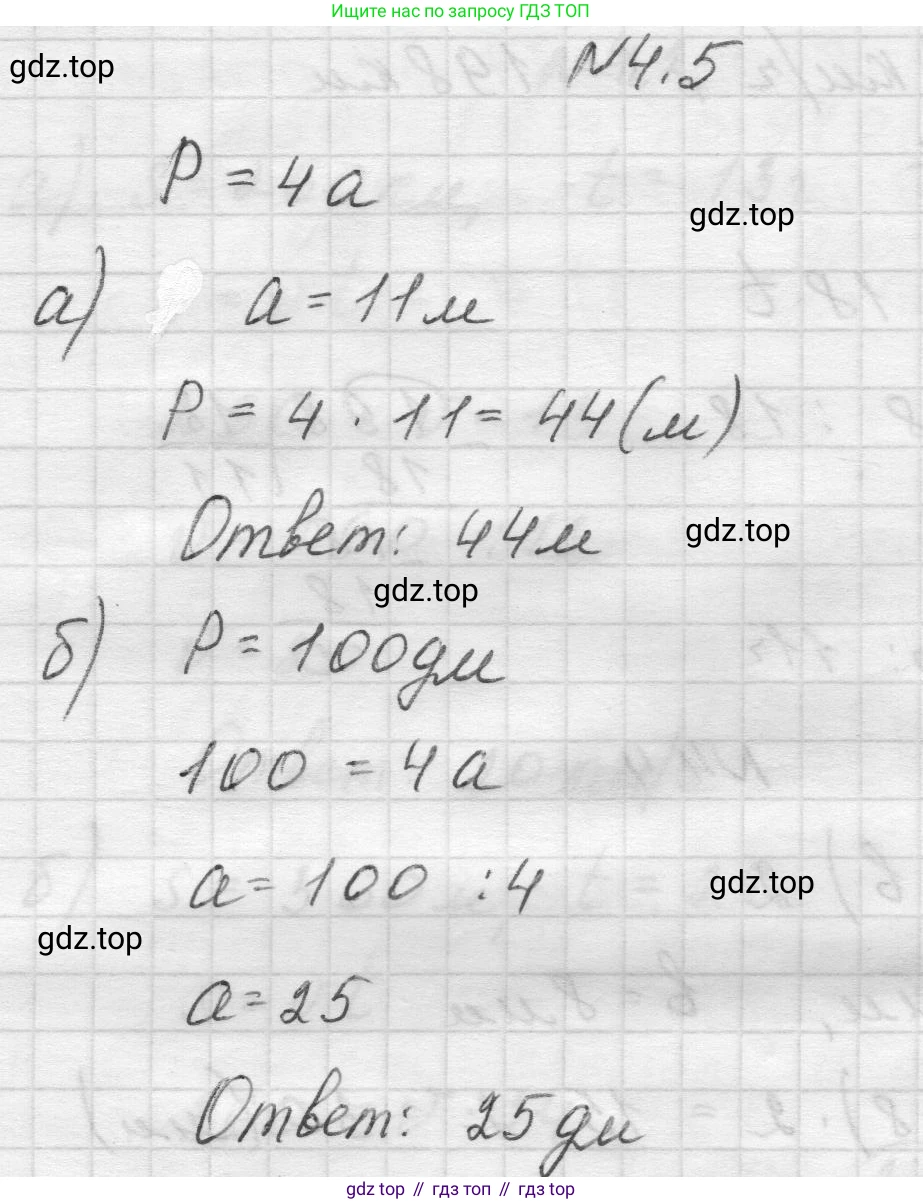 Ищите нас по запросу ГДЗ ТОП
gdz.top
№4.5
P = 4a
gdz.top
а) a = 11м
P = 4 · 11 = 44(м)
Ответ: 44м
gdz.top
gdz.top
б) P = 100дм
100 = 4a
a = 100 : 4
gdz.top
gdz.top
a = 25
Ответ: 25дм
gdz top // гдз топ // gdz top